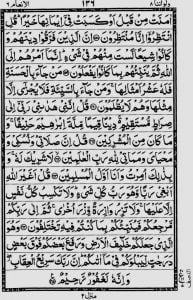 ولواننا ٨ ١٣٦ الانعام ٦
اٰمَنَتْ مِنْ قَبْلُ اَوْ كَسَبَتْ فِيْۤ اِيْمَانِهَا خَيْرًا ؕ قُلِ
انْتَظِرُوْۤا اِنَّا مُنْتَظِرُوْنَ ۝ اِنَّ الَّذِيْنَ فَرَّقُوْا دِيْنَهُمْ وَ
كَانُوْا شِيَعًا لَّسْتَ مِنْهُمْ فِيْ شَيْءٍ ؕ اِنَّمَاۤ اَمْرُهُمْ اِلَى
اللّٰهِ ثُمَّ يُنَبِّئُهُمْ بِمَا كَانُوْا يَفْعَلُوْنَ ۝ مَنْ جَآءَ بِالْحَسَنَةِ
فَلَهٗ عَشْرُ اَمْثَالِهَا ۚ وَمَنْ جَآءَ بِالسَّيِّئَةِ فَلَا يُجْزٰۤى اِلَّا
مِثْلَهَا وَهُمْ لَا يُظْلَمُوْنَ ۝ قُلْ اِنَّنِيْ هَدٰىنِيْ رَبِّيْۤ اِلٰى
صِرَاطٍ مُّسْتَقِيْمٍ ۚ دِيْنًا قِيَمًا مِّلَّةَ اِبْرٰهِيْمَ حَنِيْفًا ۚ وَ
مَا كَانَ مِنَ الْمُشْرِكِيْنَ ۝ قُلْ اِنَّ صَلَاتِيْ وَنُسُكِيْ وَ
مَحْيَايَ وَمَمَاتِيْ لِلّٰهِ رَبِّ الْعٰلَمِيْنَ ۝ لَا شَرِيْكَ لَهٗ ۚ وَ
بِذٰلِكَ اُمِرْتُ وَاَنَا اَوَّلُ الْمُسْلِمِيْنَ ۝ قُلْ اَغَيْرَ اللّٰهِ
اَبْغِيْ رَبًّا وَّهُوَ رَبُّ كُلِّ شَيْءٍ ؕ وَلَا تَكْسِبُ كُلُّ نَفْسٍ
اِلَّا عَلَيْهَا ۚ وَلَا تَزِرُ وَازِرَةٌ وِّزْرَ اُخْرٰى ۚ ثُمَّ اِلٰى رَبِّكُمْ
مَّرْجِعُكُمْ فَيُنَبِّئُكُمْ بِمَا كُنْتُمْ فِيْهِ تَخْتَلِفُوْنَ ۝ وَهُوَ
الَّذِيْ جَعَلَكُمْ خَلٰٓئِفَ الْاَرْضِ وَرَفَعَ بَعْضَكُمْ فَوْقَ بَعْضٍ
دَرَجٰتٍ لِّيَبْلُوَكُمْ فِيْ مَاۤ اٰتٰىكُمْ ؕ اِنَّ رَبَّكَ سَرِيْعُ الْعِقَابِ ۖ
وَاِنَّهٗ لَغَفُوْرٌ رَّحِيْمٌ ۝
منزل ٢